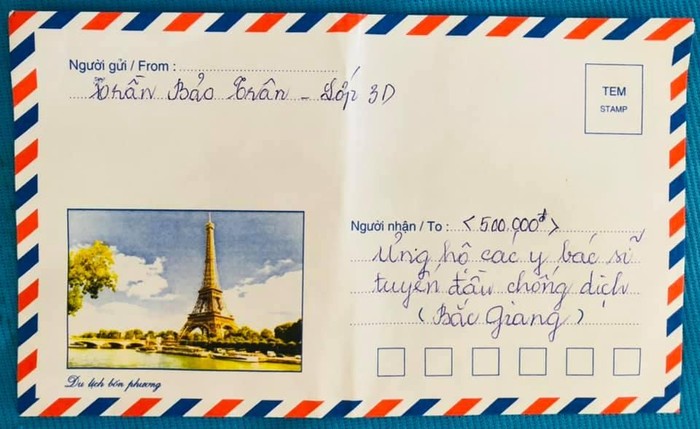 Người gửi / From :
Trần Bảo Trân - Lớp 3D
TEM
STAMP
Người nhận / To : <500,000đ>
Ủng hộ các y bác sĩ
tuyến đầu chống dịch
(Bắc Giang)
Du lịch bốn phương